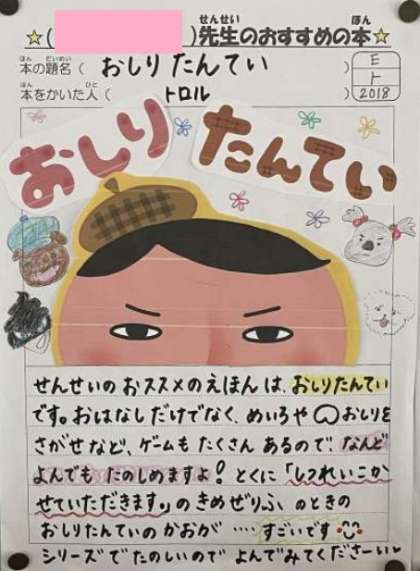 ☆( )先生のおすすめの本☆
せんせい ほん
本の題名( おしりたんてい )
ほん だいめい
本をかいた人( トロル )
ほん ひと
E
ト
2018
おしり
たんてい
せんせいの おススメのえほんは、おしりたんてい
です。おはなしだけでなく、めいろや おしりを
さがせなど、ゲームも たくさん あるので、なんど
よんでも たのしめますよ! とくに「しつれいこか
せていただきます。」の きめぜりふ のときの
おしりたんていの かおが ‥‥ すごいです
シリーズで たのしいので よんでみてくださーい♥